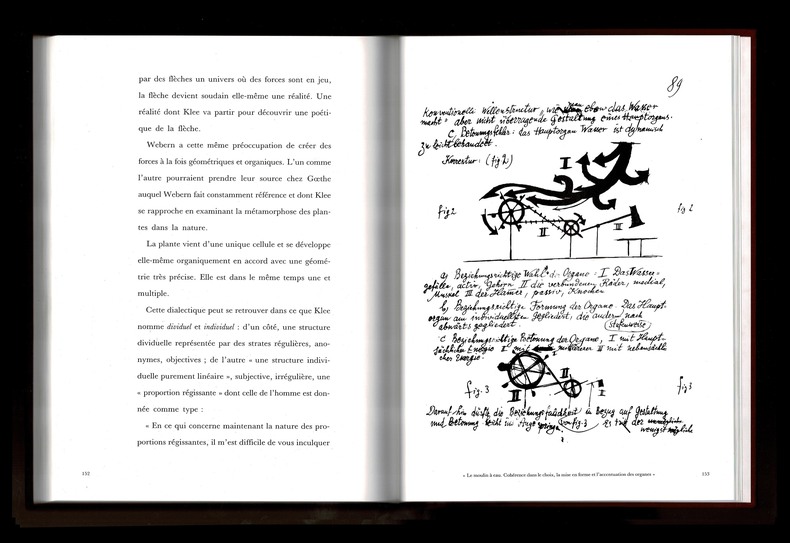 par des flèches un univers où des forces sont en jeu,
la flèche devient soudain elle-même une réalité. Une
réalité dont Klee va partir pour découvrir une poéti-
que de la flèche.
Webern a cette même préoccupation de créer des
forces à la fois géométriques et organiques. L'un comme
l'autre pourraient prendre leur source chez Gœthe
auquel Webern fait constamment référence et dont Klee
se rapproche en examinant la métamorphose des plan-
tes dans la nature.
La plante vient d'une unique cellule et se développe
elle-même organiquement en accord avec une géomé-
trie très précise. Elle est dans le même temps une et
multiple.
Cette dialectique peut se retrouver dans ce que Klee
nomme dividuel et individuel : d'un côté, une structure
dividuelle représentée par des strates régulières, ano-
nymes, objectives ; de l'autre « une structure indivi-
duelle purement linéaire », subjective, irrégulière, une
« proportion régissante » dont celle de l'homme est don-
née comme type :
« En ce qui concerne maintenant la nature des pro-
portions régissantes, il m'est difficile de vous inculquer
152
89
Konventionelle Willensstruktur, wie eben das Wasser
macht" aber nicht überzeugende Gestaltung eines Hauptorgans.
C, Betonungsfehler: das Hauptorgan Wasser ist dynamisch
zu leicht behandelt.
Korrectur: (fig 2)
I
fig 2
II
III
fig 2
a) Beziehungsrichtige Wahl der Organe = I Das Wasser-
gefälle, activ, Gehirn II die verbundenen Räder, medial,
Muskel III der Hammer, passiv, Knochen
b) Beziehungsrichtige Formung der Organe. Das Haupt-
organ am individuellsten gegliedert, die andern nach
abwärts gegliedert. (stufenweise)
C Beziehungsrichtige Betonung der Organe, I mit Haupt-
sächlicher Energie II mit mittlerer III mit nebensächli-
cher Energie.
fig. 3
II
II
I
fig 3
Daraufhin dürfte die Beziehungsfalschheit in Bezug auf Gestaltung
und Betonung leicht in die Auge springen von fig. 3
« Le moulin à eau. Cohérence dans le choix, la mise en forme et l'accentuation des organes »
153